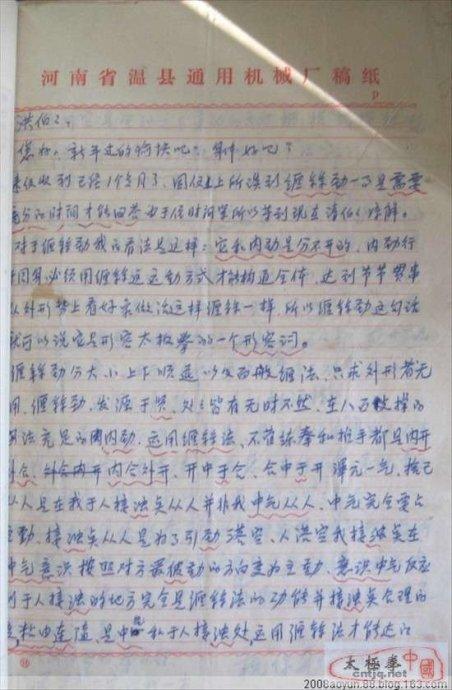 河南省温县通用机械厂稿纸
P
洪伯:
您好,新年过的愉快吧?身体好吧?
来信收到已经1个多月了,因信上所谈到缠丝劲一词是需要
充分的时间才能回答由于位时间紧所以等到现在请伯之谅解。
对于缠丝劲我的看法是这样:它和内劲是分不开的,内劲行
周身必须用缠丝运动方式才能构通全体,达到节节贯串
从外形势上看好象做法这样缠丝一样,所以缠丝劲这句话
就可以说它是形容太极拳的一个形容词。
缠丝劲分大小上下顺逆以及各般缠法,只求外形者无
用,缠丝劲,发源于肾,处处皆有无时不然,在八面支撑的
用法充足的内劲,运用缠丝法,不管练拳和推手都是内开
外合,内合外开,开中于合,合中于开浑元一气,捨己
从人是在我于人接浊点从人并非我中气从人,中气完全要占
主动,接浊点从人是为了引劲落空,人落空我接浊点在
中气意识按照对方最被动的方向变为主动,意识中气反应
对于人接浊的地方完全是缠丝法的功能并接浊点合理的
松由连随是中气于人接浊处,运用缠丝法才能达的
太極拳
中國
cntjq.net
2008aoyun.88.blog.163.com